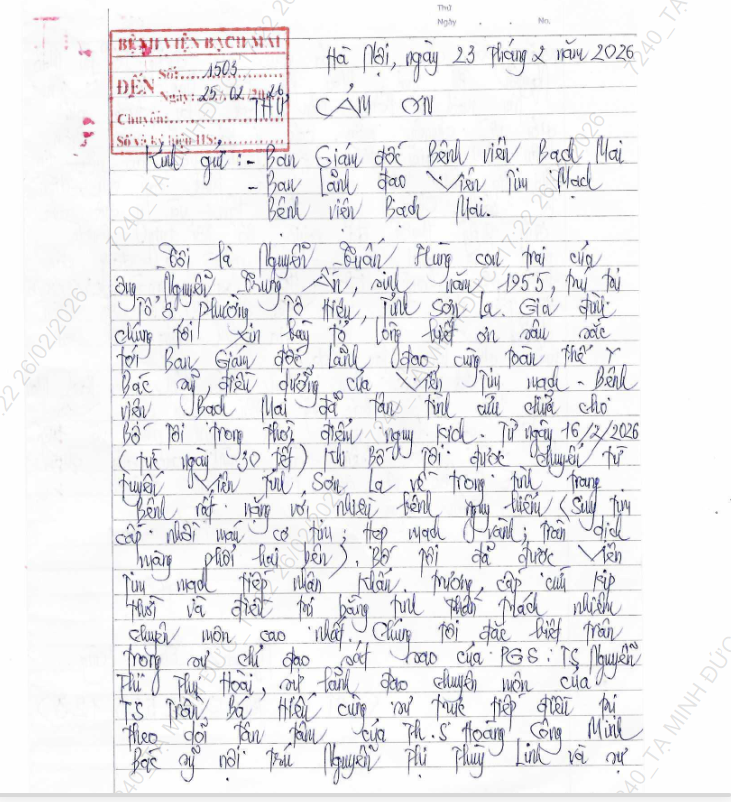 Thứ
Ngày . . No.
BỆNH VIỆN BẠCH MAI
ĐẾN
Số: 1503
Ngày: 25/02/2026
Chuyển:
Số và ký hiệu HS:
Hà Nội, ngày 23 tháng 2 năm 2026
THƯ CẢM ƠN
Kính gửi : - Ban Giám đốc Bệnh viện Bạch Mai
- Ban Lãnh đạo Viện Tim Mạch
Bệnh viện Bạch Mai.
Tôi là Nguyễn Tuấn Hưng con trai của
ông Nguyễn Trung Ấn, sinh năm 1955, trú tại
Tổ 3 phường Tô Hiệu, Tỉnh Sơn La. Gia đình
chúng tôi xin bày tỏ lòng biết ơn sâu sắc
tới Ban Giám đốc Lãnh đạo cùng toàn thể Y
Bác sỹ, điều dưỡng của Viện Tim mạch - Bệnh
viện Bạch Mai đã tận tình cứu chữa cho
Bố tôi trong thời điểm nguy kịch. Từ ngày 16/2/2026
(tức ngày 30 tết) khi Bố tôi được chuyển từ
tuyến Viện tỉnh Sơn La về trong tình trạng
Bệnh rất nặng với nhiều bệnh nguy hiểm (Suy tim
cấp nhồi máu cơ tim; Hẹp mạch vành; tràn dịch
màng phổi hai bên). Bố tôi đã được Viện
Tim mạch tiếp nhận khẩn trương, cấp cứu kịp
thời và điều trị bằng tinh thần trách nhiệm
chuyên môn cao nhất. Chúng tôi đặc biệt trân
trọng sự chỉ đạo sát sao của PGS: TS Nguyễn
Thị Thu Hoài, sự lãnh đạo chuyên môn của
TS Trần Bá Hiếu cùng sự trực tiếp điều trị
theo dõi tận tâm của Th.S Hoàng Công Minh
Bác sỹ nội trú Nguyễn Thị Thùy Linh và sự
7240_TA MINH ĐỨC_17:22 26/02/2026